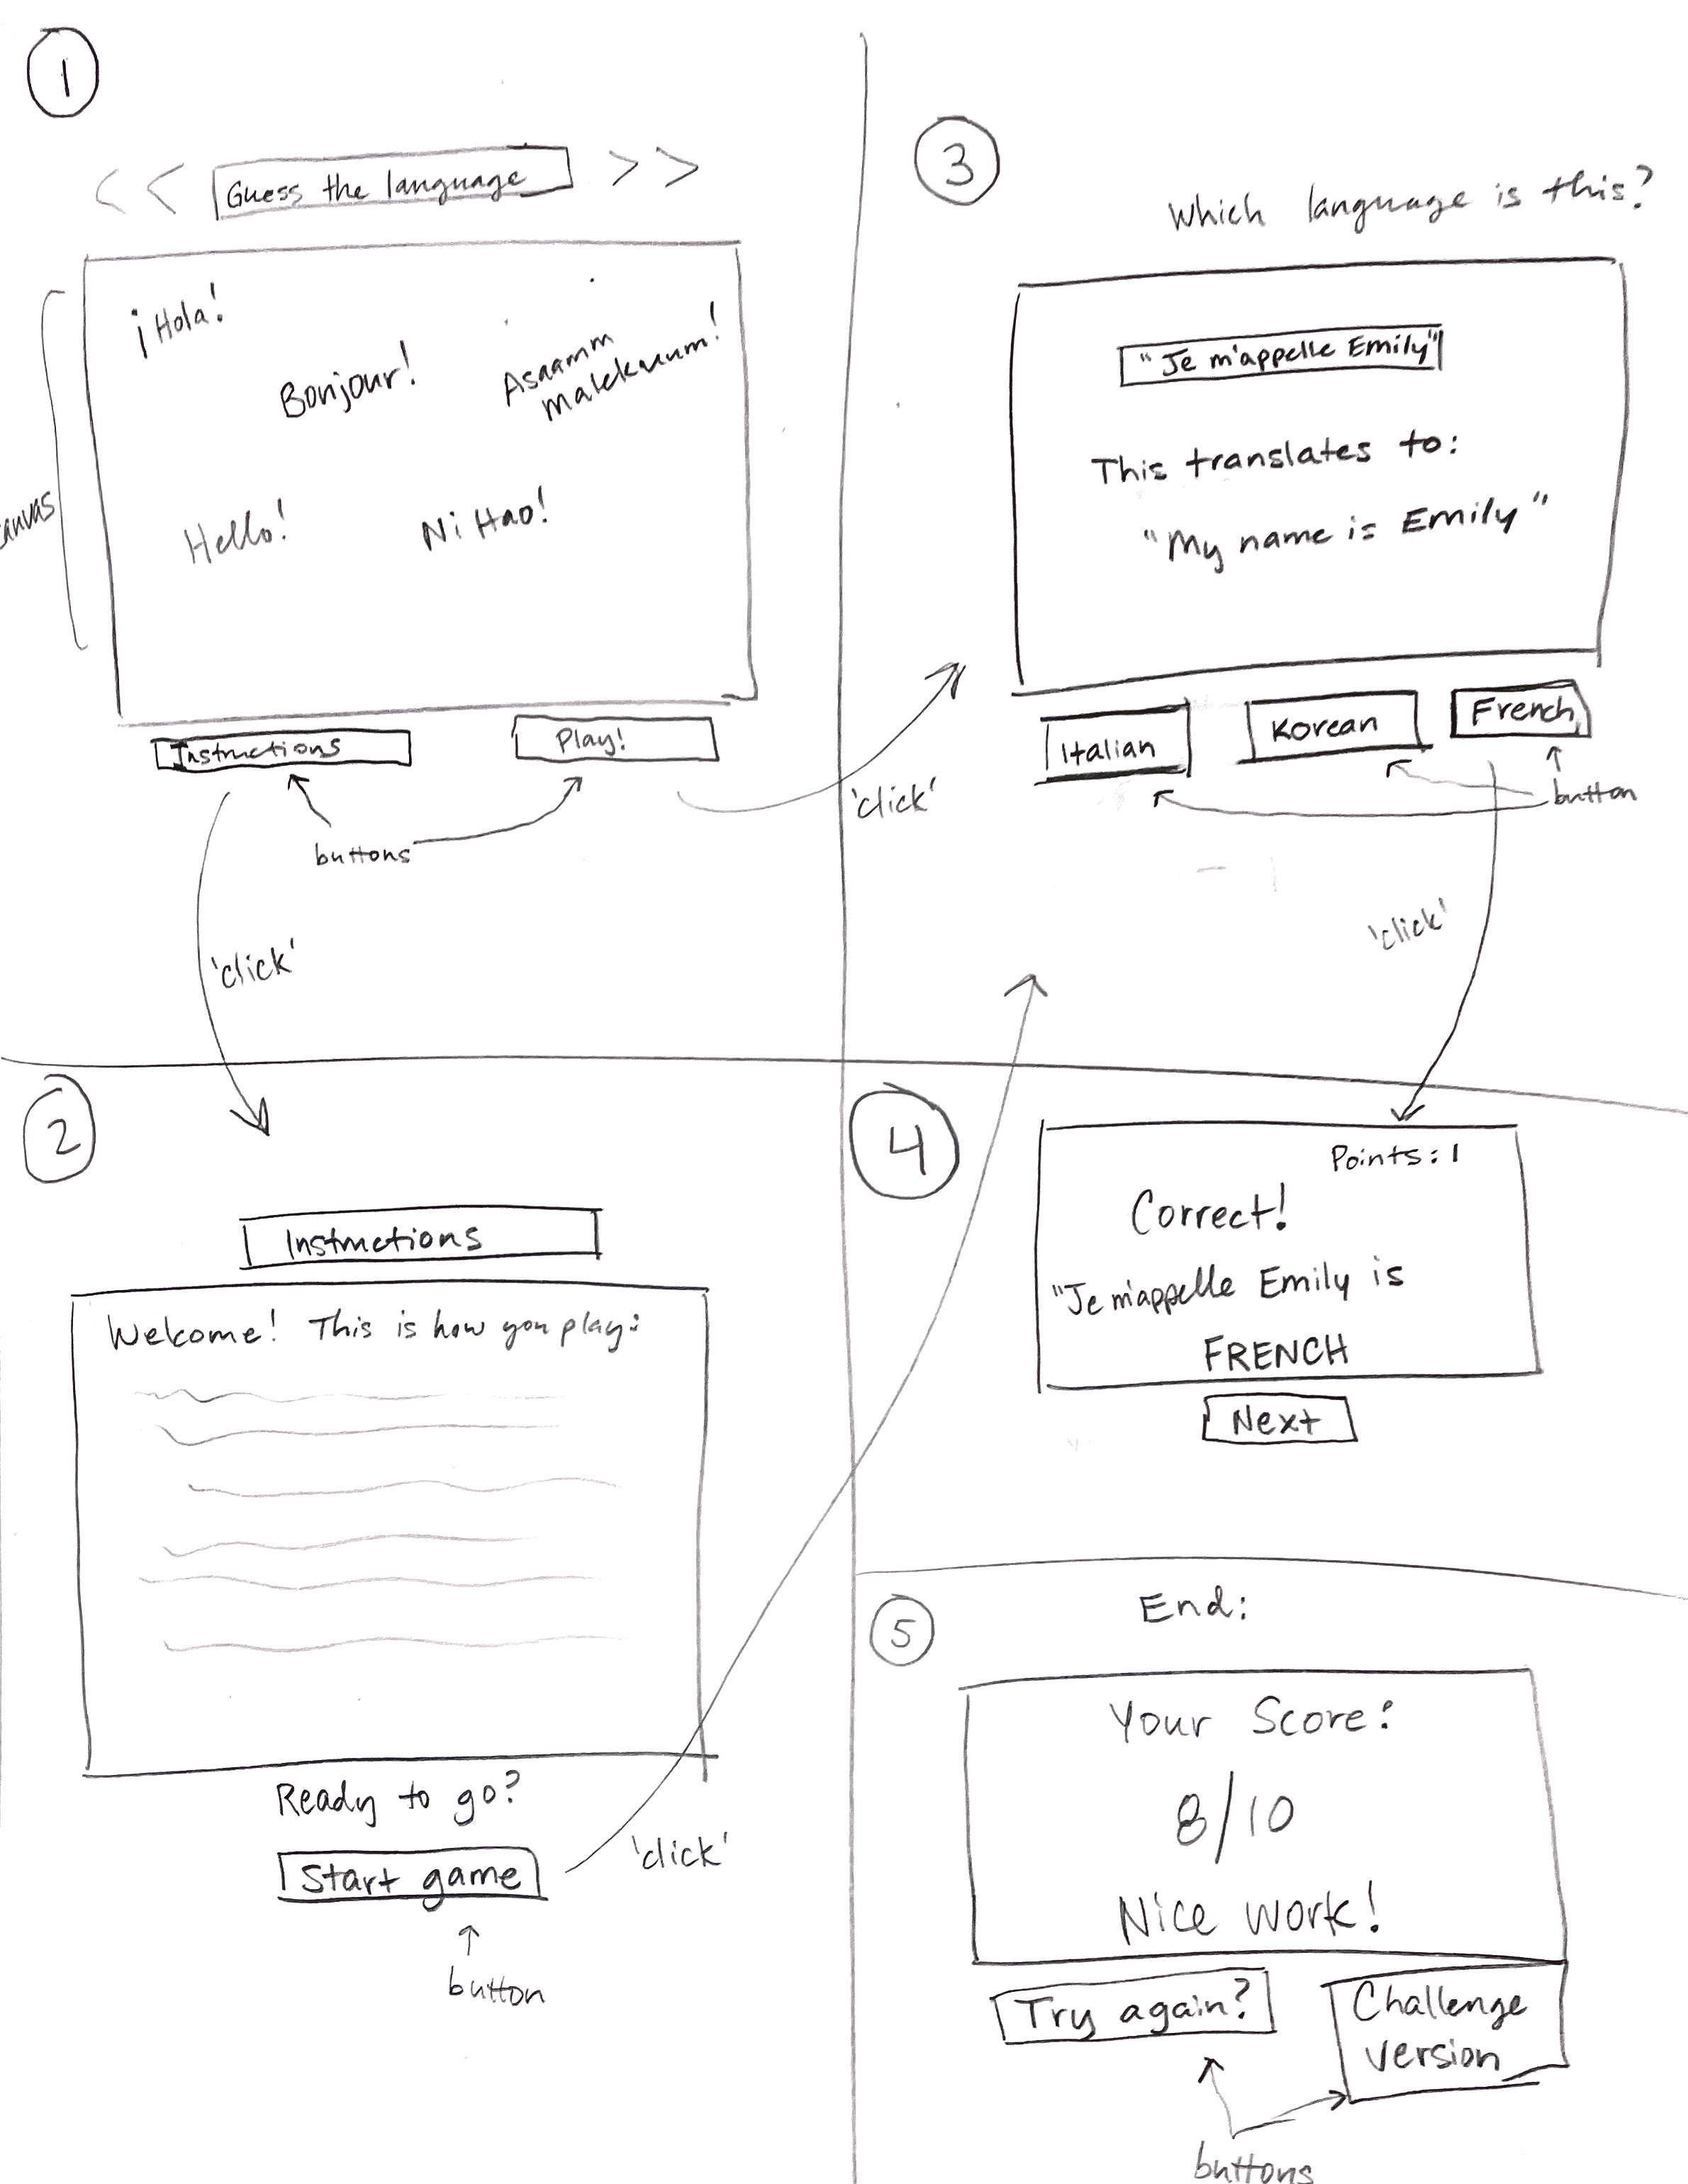 1
<< Guess the language >>
¡Hola!
Bonjour!
Asaamm
malekuum!
Hello!
Ni Hao!
canvas
Instructions
Play!
buttons
'click'
'click'
2
Instructions
Welcome! This is how you play:
Ready to go?
Start game
'click'
button
3
Which language is this?
"Je m'appelle Emily"
This translates to:
"My name is Emily"
Italian
Korean
French
button
'click'
4
Points: 1
Correct!
"Je m'appelle Emily is
FRENCH
Next
5
End:
Your Score:
8/10
Nice work!
Try again?
Challenge
version
buttons